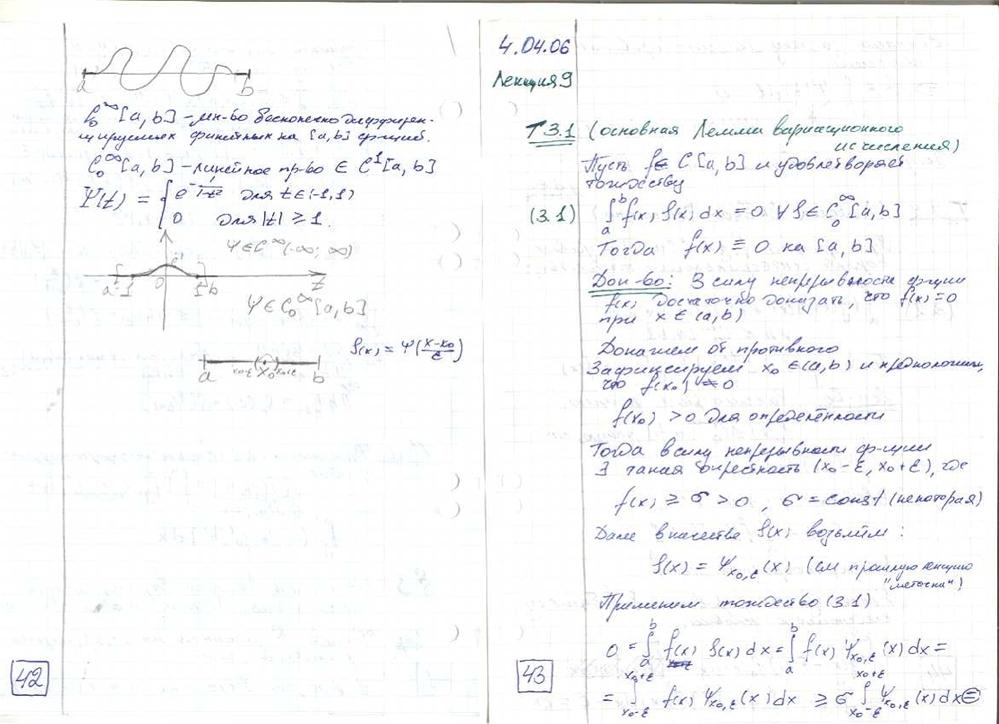 a b
C₀^∞[a, b] – мн-во бесконечно дифферен-
цируемых финитных на [a, b] ф-ций.
C₀^∞[a, b] – линейное пр-во ∈ C¹[a, b]
Ψ(t) = { e^{-1/(1-t²)} для t ∈ (-1, 1)
0 для |t| ≥ 1.
Ψ ∈ C^∞(-∞; ∞)
a -1 0 1 b t
Ψ ∈ C₀^∞[a, b]
ρ(x) = Ψ((x-x₀)/ε)
a x₀-ε x₀ x₀+ε b
42
4.04.06
Лекция 9
Т 3.1 (основная Лемма вариационного
исчисления)
Пусть f ∈ C[a, b] и удовлетворяет
тождеству
(3.1) ∫ₐᵇ f(x) ρ(x) dx = 0 ∀ ρ ∈ C₀^∞[a, b]
Тогда f(x) ≡ 0 на [a, b]
Док-во: В силу непрерывности ф-ции
f(x) достаточно доказать, что f(x) = 0
при x ∈ (a, b)
Докажем от противного
Зафиксируем x₀ ∈ (a, b) и предположим,
что f(x₀) ≠ 0
f(x₀) > 0 для определённости
Тогда в силу непрерывности ф-ции
∃ такая окрестность (x₀-ε, x₀+ε), где
f(x) ≥ σ > 0, σ = const (некоторая)
Далее в качестве ρ(x) возьмём:
ρ(x) = Ψ_{x₀,ε}(x) (см прошлую лекцию
"шапочка")
Применим тождество (3.1)
0 = ∫ₐᵇ f(x) ρ(x) dx = ∫ₐᵇ f(x) Ψ_{x₀,ε}(x) dx =
= ∫_{x₀-ε}^{x₀+ε} f(x) Ψ_{x₀,ε}(x) dx ≥ σ ∫_{x₀-ε}^{x₀+ε} Ψ_{x₀,ε}(x) dx =
43